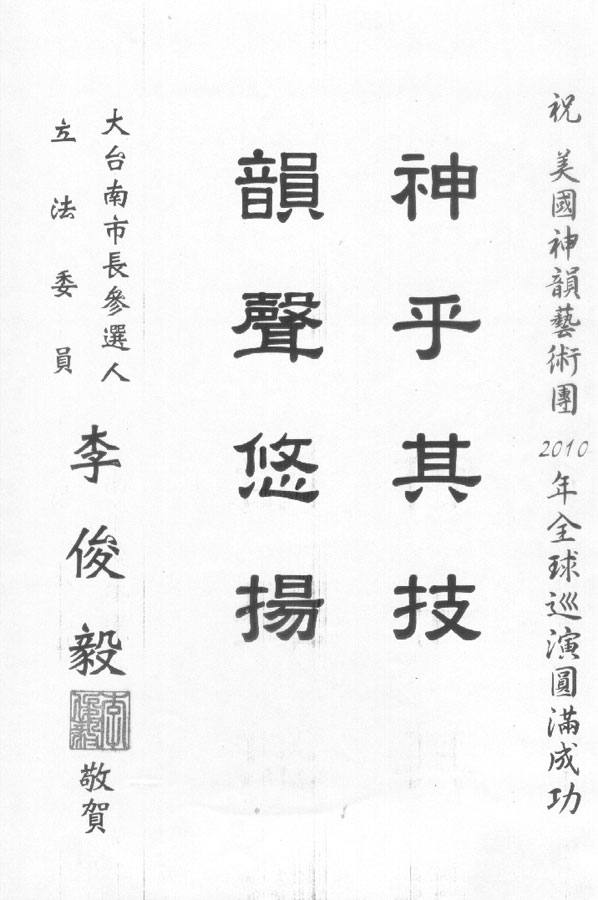 祝 美國神韻藝術團 2010 年全球巡演圓滿成功
神乎其技
韻聲悠揚
大台南市長參選人
立法委員
李俊毅
李俊毅
敬賀